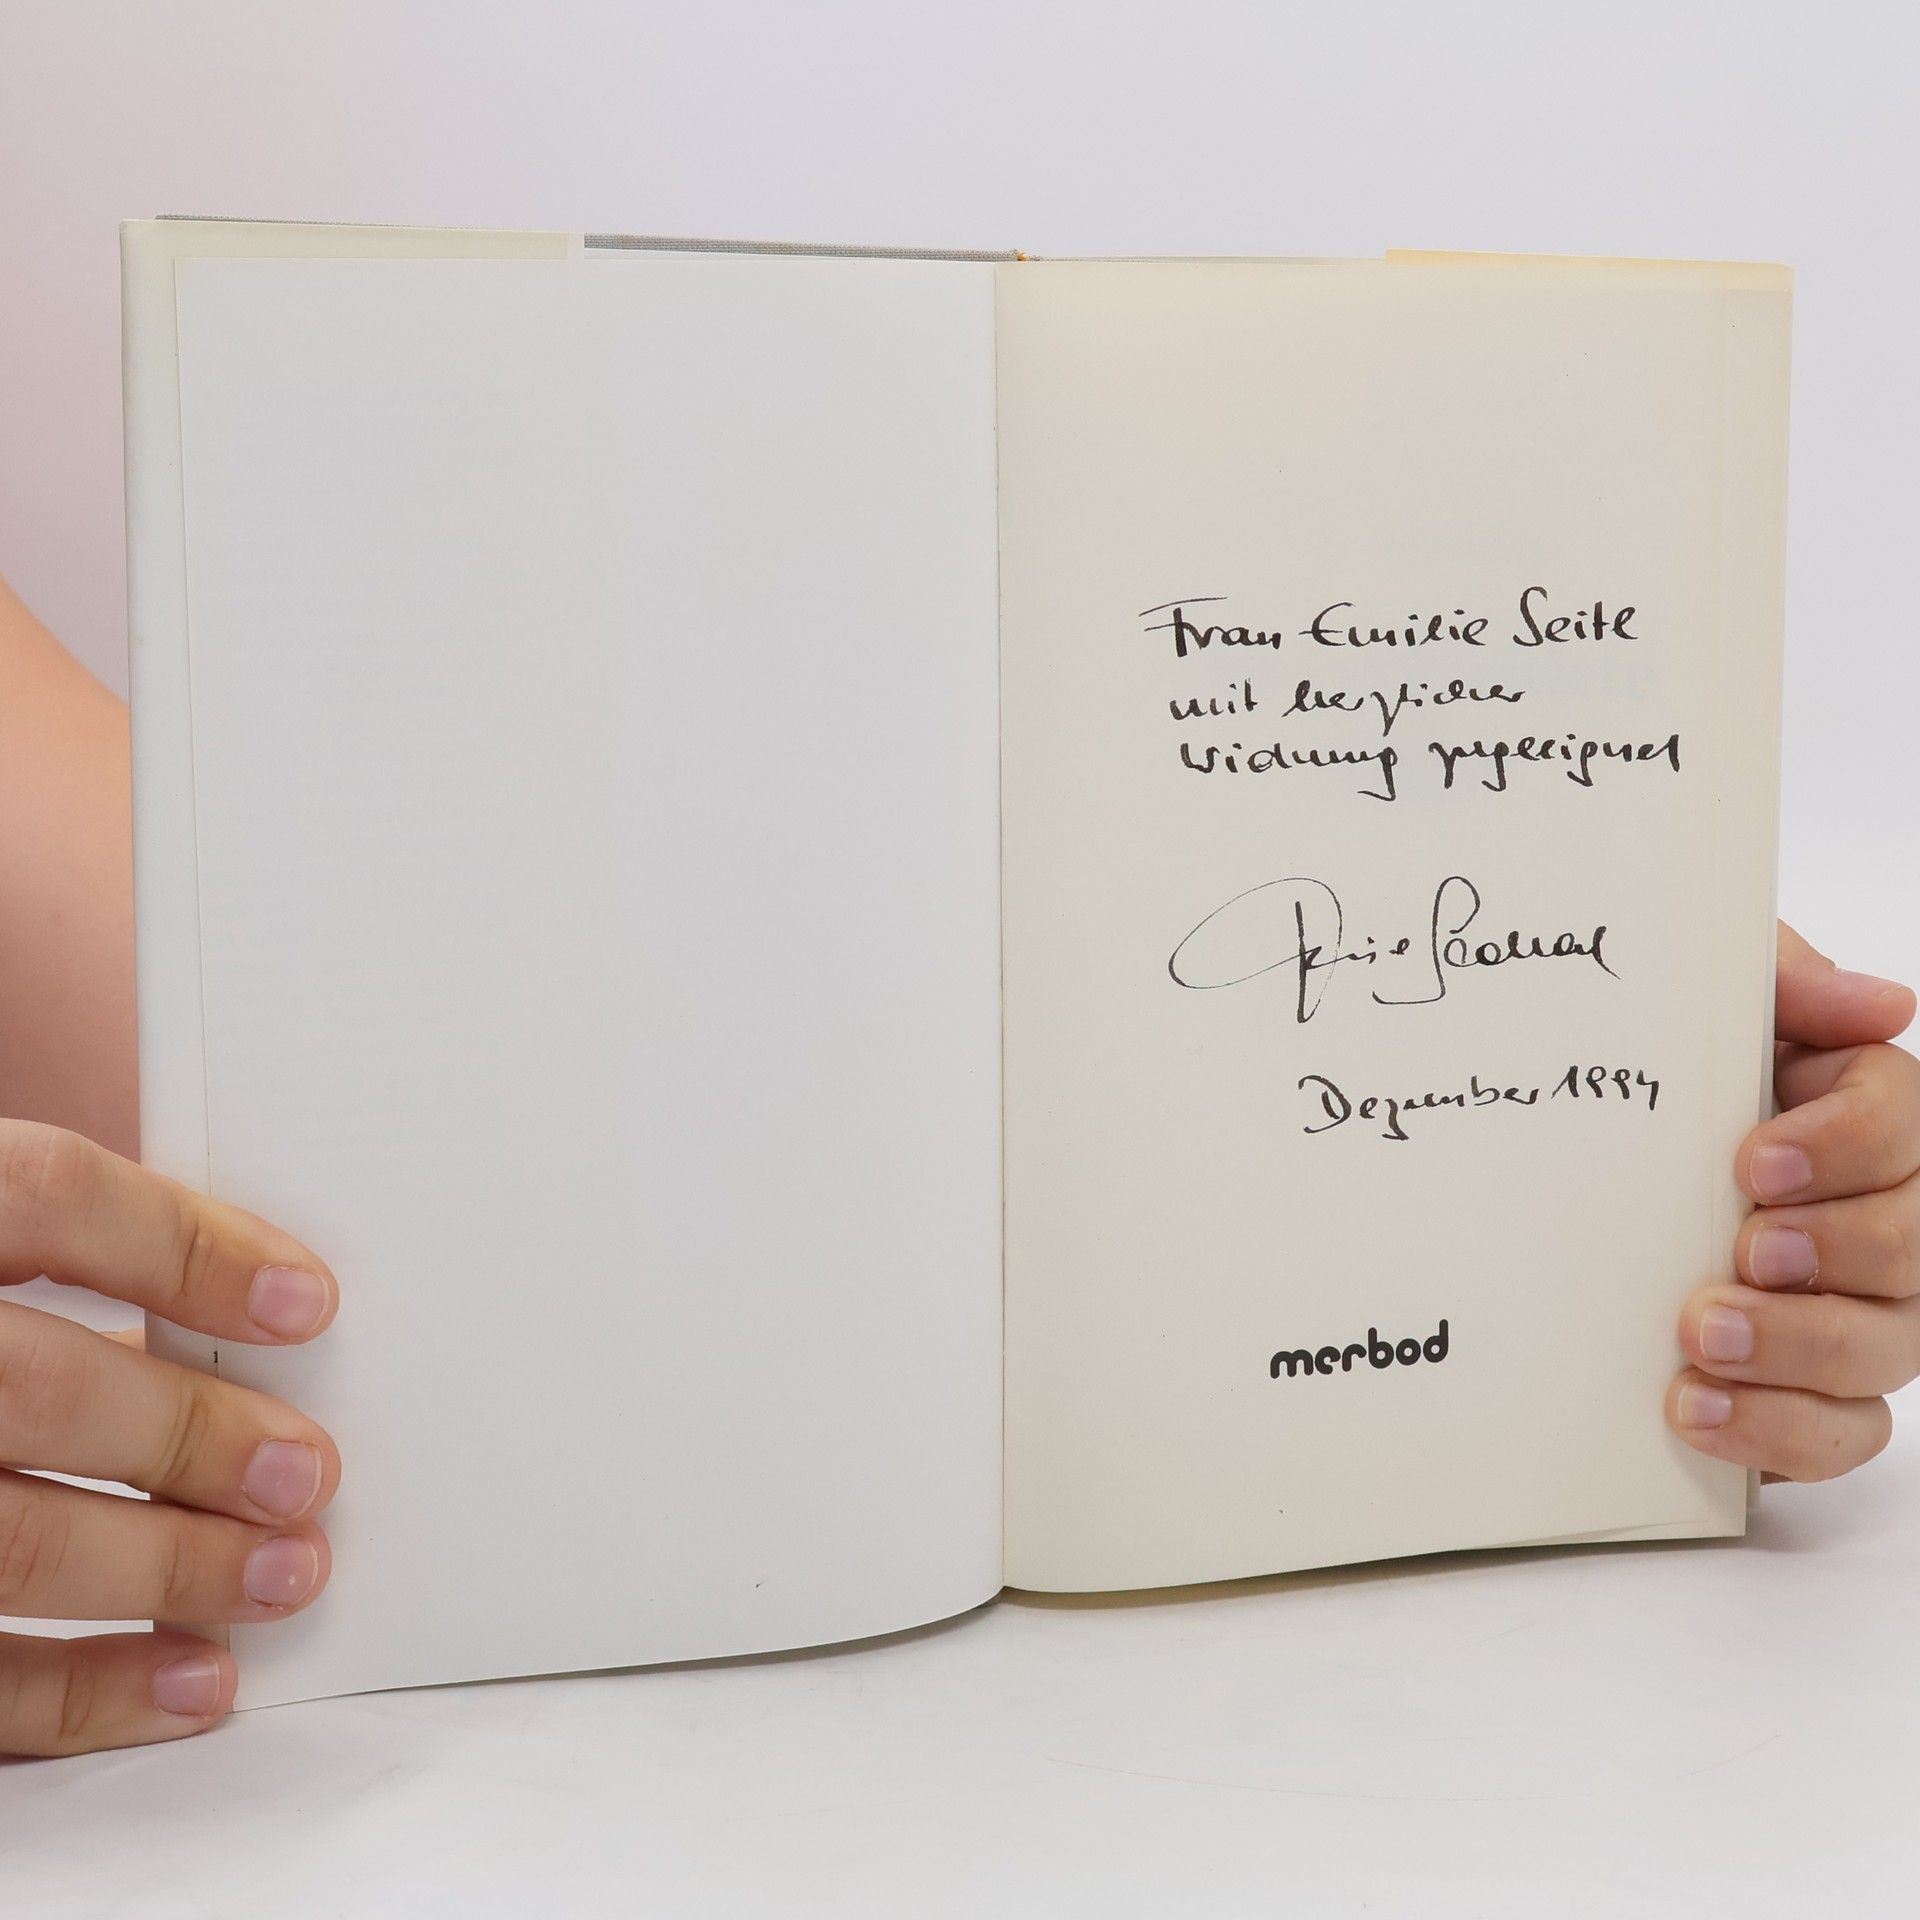 Frau Emilie Seitl
mit herzlicher
Widmung zugeeignet
Dezember 1994
merbod